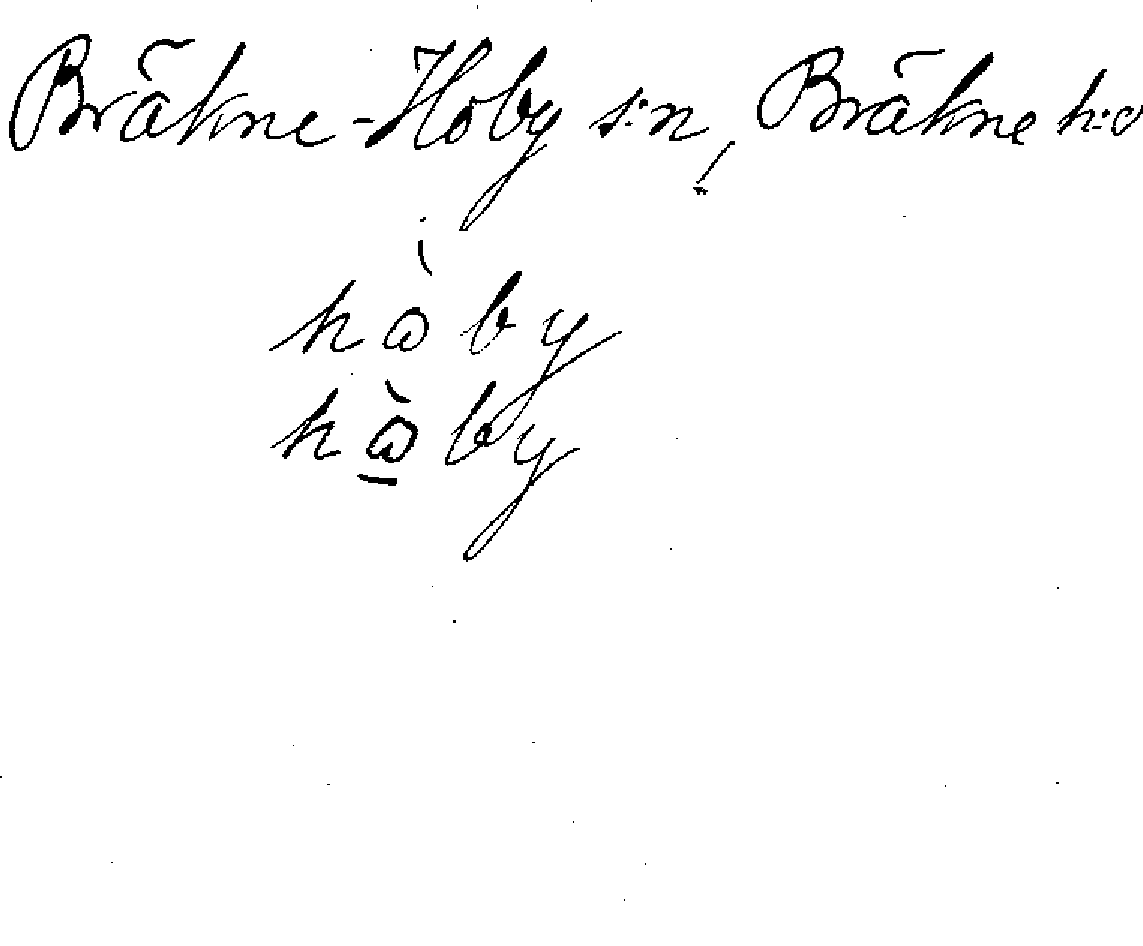 Bräkne-Hoby s:n, Bräkne h:d
hòby
hò̲by